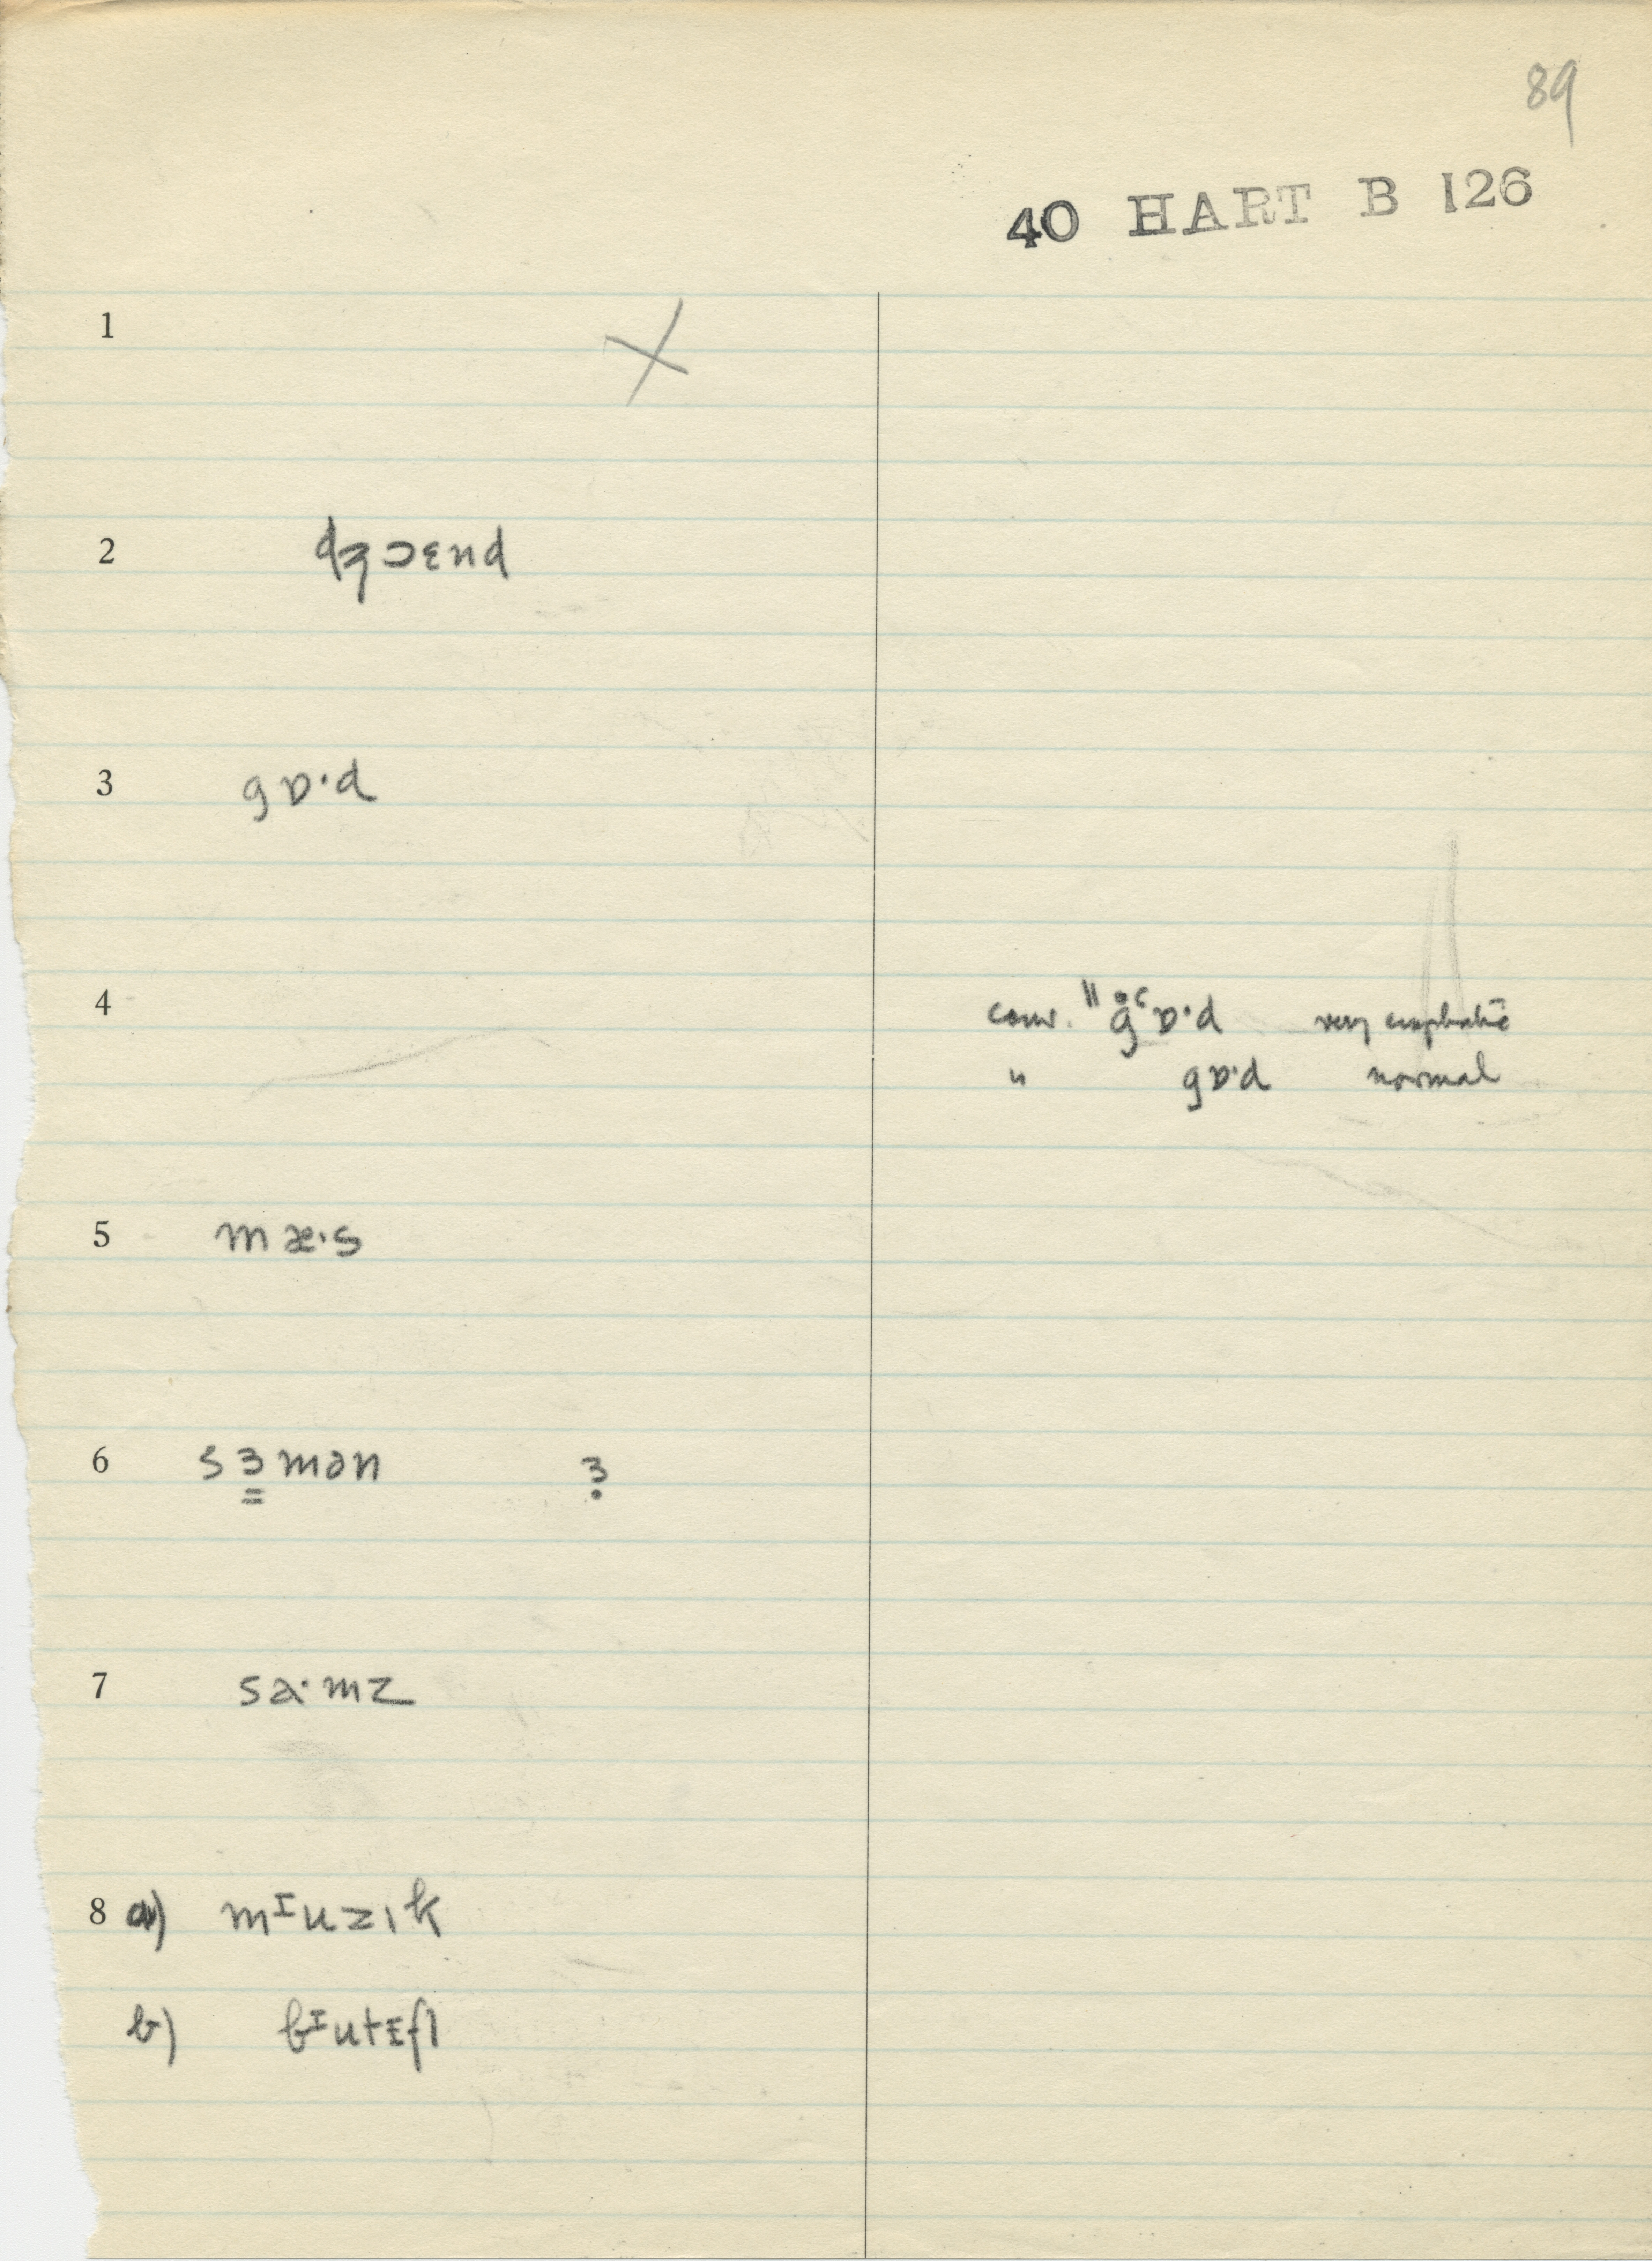 89
40 HART B 126
1 X
2 dʒɔɛnd
3 gɒ·d
4 conv. "g̊ᶜɒ·d very emphatic
" gɒ·d normal
5 mæ·s
6 sɜ̳mən ɜ̣
7 sa·mz
8 a) mᴵuzɪk
b) bᴵutɪfl